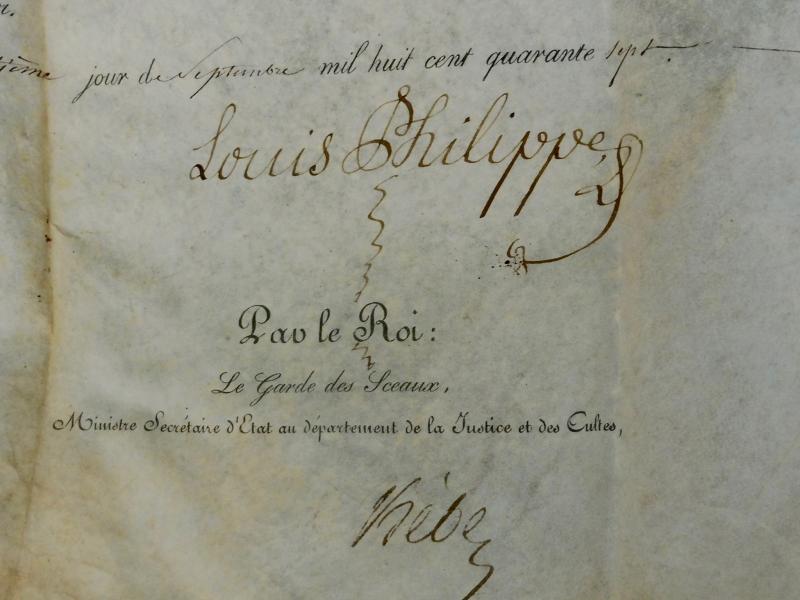 jour de Septembre mil huit cent quarante sept.
Louis Philippe
Par le Roi :
Le Garde des Sceaux,
Ministre Secrétaire d'Etat au département de la Justice et des Cultes,